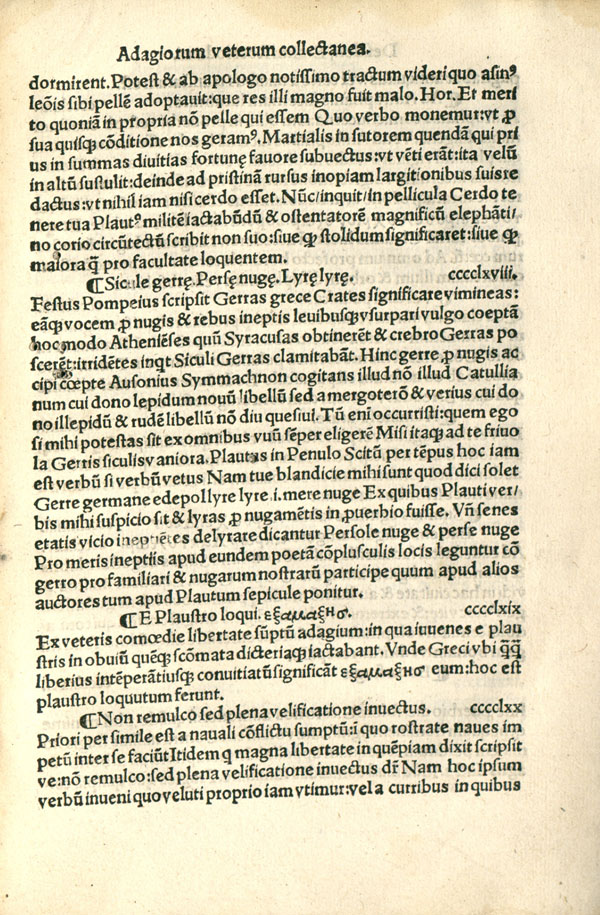 Adagiorum veterum collectanea.
dormirent. Potest & ab apologo notissimo tractum videri quo asinꝰ
leōis sibi pellē adoptauit: que res illi magno fuit malo. Hor. Et meri
to quoniā in propria nō pelle qui essem Quo verbo monemur: vt ꝓ
sua quisqꝫ cōditione nos geramꝰ. Martialis in sutorem quendā qui pri
us in summas diuitias fortunę fauore subuectus: vt vēti erāt: ita velū
in altū sustulit: deinde ad pristinā rursus inopiam largitionibus suis re
dactus: vt nihil iam nisi cerdo esset. Nūc/ inquit/ in pellicula Cerdo te
nere tua Plautꝰ militē iactabūdū & ostentatorē magnificū elephāti/
no corio circūtectū scribit non suo: siue ꝙ stolidum significaret: siue ꝙ
maiora q̄ pro facultate loquentem.
¶ Sicule gerrę. Persę nugę. Lyrę lyrę. cccclxviii.
Festus Pompeius scripsit Gerras grece Crates significare vimineas:
eāqꝫ vocem ꝓ nugis & rebus ineptis leuibusqꝫ vsurpari vulgo coeptā
hoc modo Atheniēses quū Syracusas obtinerēt & crebro Gerras po
scerēt: irridētes inqt Siculi Gerras clamitabāt. Hinc gerre ꝓ nugis ac
cipi cœpte Ausonius Symmachnon cogitans illud nō illud Catullia
num cui dono lepidum nouū libellū sed amergoterō & verius cui do
no illepidū & rudē libellū nō diu quesiui. Tū eni occurristi: quem ego
si mihi potestas sit ex omnibus vuū sēper eligerē Misi itaqꝫ ad te friuo
la Gerris siculis vaniora. Plautus in Penulo Scitū per tēpus hoc iam
est verbū si verbū vetus Nam tue blandicie mihi sunt quod dici solet
Gerre germane edepol lyre lyre .i. mere nuge Ex quibus Plauti ver/
bis mihi suspicio sit & lyras ꝓ nugamētis in ꝓuerbio fuisse. Vn̄ senes
etatis vicio ineptiētes delyrare dicantur Persole nuge & perse nuge
Pro meris ineptiis apud eundem poetā cōplusculis locis leguntur cō
gerro pro familiari & nugarum nostrarū participe quum apud alios
auctores tum apud Plautum sepicule ponitur.
¶ E Plaustro loqui. εξαμαξησ. cccclxix
Ex veteris comœdie libertate sūptū adagium: in qua iuuenes e plau
stris in obuiū quēqꝫ scōmata dicteriaqꝫ iactabant. Vnde Greci vbi q̄q̄
liberius intēperātiusqꝫ conuitiatū significāt εξαμαξησ eum: hoc est
plaustro loquutum ferunt.
¶ Non remulco sed plena velificatione inuectus. cccclxx
Priori per simile est a nauali cōflictu sumptū: i quo rostrate naues im
petū inter se faciūt Itidem q magna libertate in quēpiam dixit scripsit
ve: nō remulco: sed plena velificatione inuectus dr̄ Nam hoc ipsum
verbū inueni quo veluti proprio iam vtimur: vel a curribus in quibus